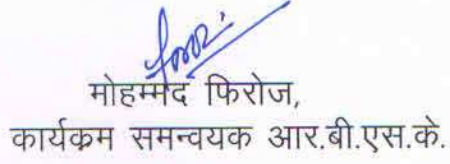 मोहम्मद फिरोज,
कार्यक्रम समन्वयक आर.बी.एस.के.